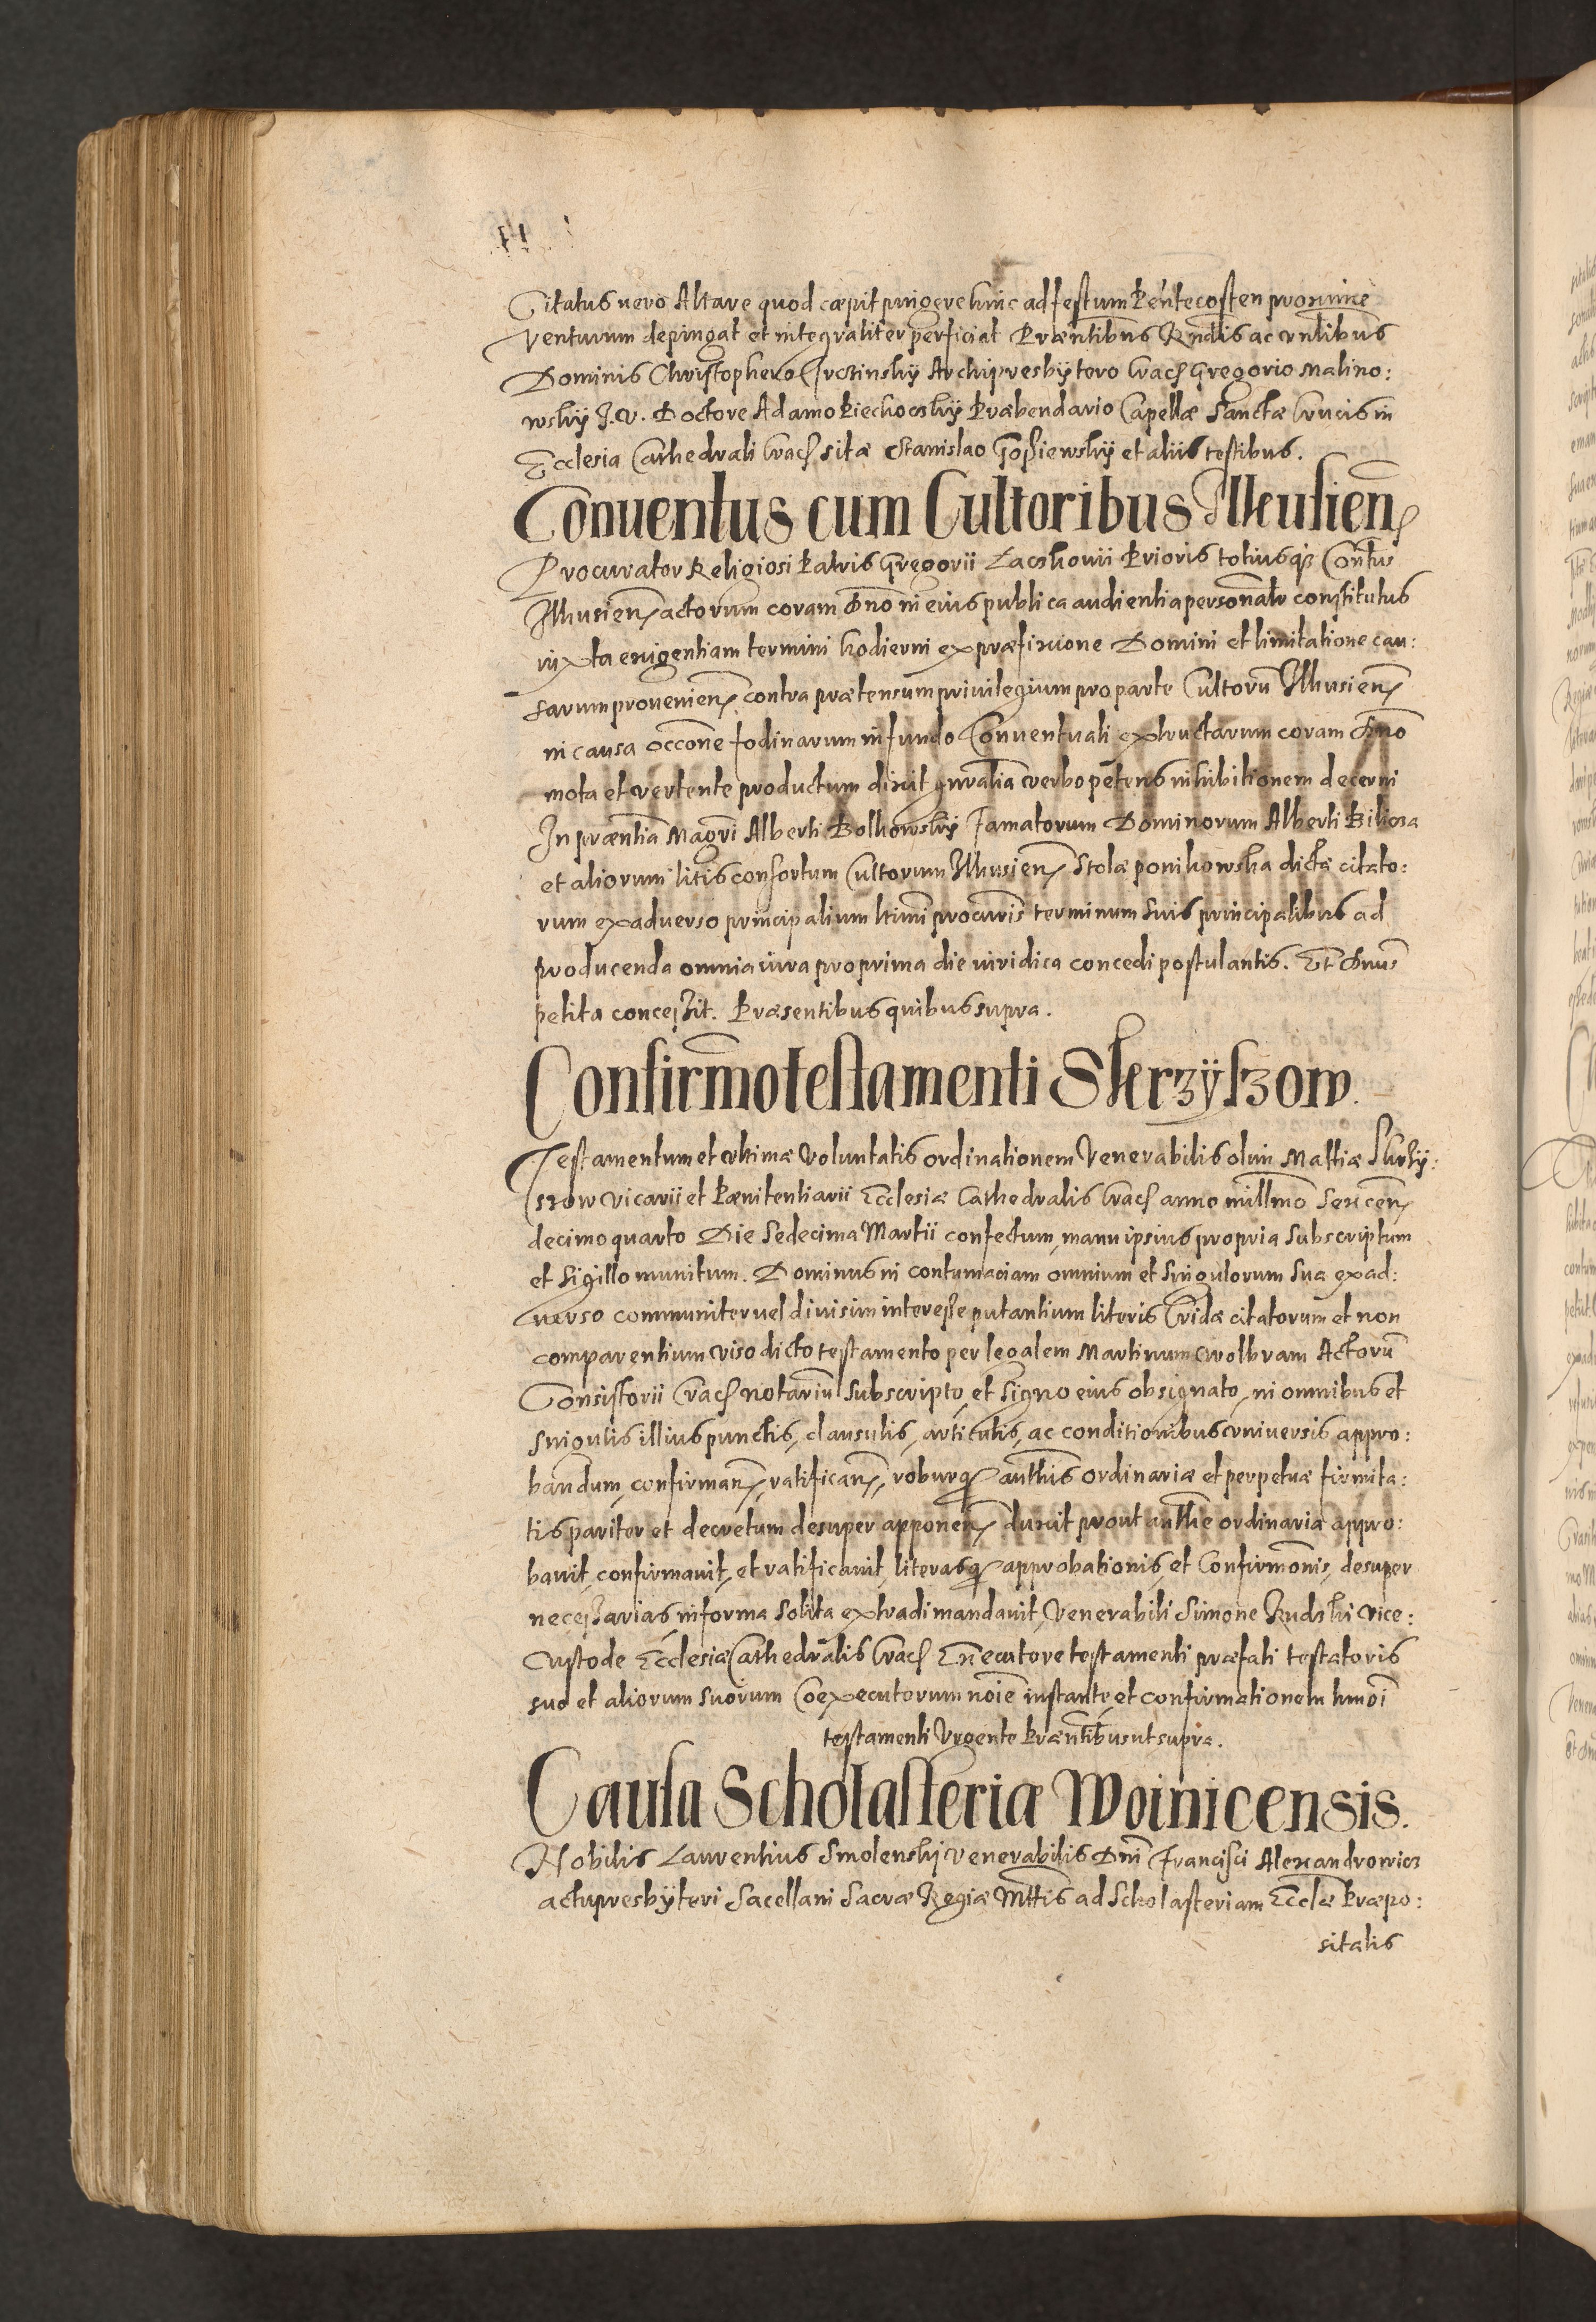 Citatus vero Altare quod cæpit pingere hinc ad festum Pentecosten proxime
venturum depingat et integraliter perficiat Præntibus Rndis ac vnlibus
Dominis Christophero Archipresbytero Crac Gregorio Malino:
wsky J. V. Doctore Adamo Piechocsky Præbendario Capellæ Sanctæ Crucis in
Ecclesia Cathedrali Crac sitæ Stanislao Gossiewsky et aliis testibus.
Conuentus cum Cultoribus Ilkusien
Procurator Religiosi Patris Gregorii Laczkouii Prioris totiusq Contus
Ilkusien actorum coram Dno in eius publica audientia personalr constitutus
iuxta exigentiam termini hodierni ex præfixione Domini et limitatione cau:
sarum prouenien contra prætensum priuilegium pro parte Cultorū Ilkusien
in causa occone fodinarum in fundo Conuentuali extructarum coram Dno
mota et vertente productum dixit gnralia verbo petens inhibitionem decerni
In præntia Magri Alberti Bolkowsky Famatorum Dominorum Alberti Bilicza
et aliorum litis consortum Cultorum Ilkusien Stolæ ponikowska dictæ citato:
rum ex aduerso principalium ltimi procuris terminum suis principalibus ad
producenda omnia iura pro prima die iuridica concedi postulantis. Et Dnus
petita concessit. Præsentibus quibus supra.
Confirmo testamenti Skerzyszow.
Testamentum et vltimæ voluntatis ordinationem Venerabilis olim Mathiæ Skrzy:
szow vicarii et Pænitentiarii Ecclesiæ Cathedralis Crac anno millmo Sexcen
decimo quarto Die Sedecima Martii confectum, manu ipsius propria subscriptum
et Sigillo munitum. Dominus in contumaciam omnium et singulorum sua ex ad:
uerso communiter vel diuisim interesse putantium literis Cridæ citatorum et non
comparentium viso dicto testamento per legalem Martinum Wolbram Actorū
Consistorii Crac notarium subscripto, et signo eius obsignato, in omnibus et
singulis illius punctis, clausulis, articulis, ac conditionibus vniuersis appro:
bandum, confirman, ratifican, roburq authis ordinariæ et perpetuæ firmita:
tis pariter et decretum desuper apponen duxit prout authe ordinaria appro:
bauit, confirmauit, et ratificauit, literasq approbationis, et Confirmonis, desuper
necessarias, in forma solita extradi mandauit, Venerabili Simone Rudzki Vice:
Custode Ecclesiæ Cathedralis Crac Executore testamenti præfati testatoris
suo et aliorum suorum Coexecutorum noie instante, et confirmationem hmoi
testamenti Vrgente Præntibus ut supra.
Causa Scholasteriæ Woinicensis.
Nobilis Laurentius Smolensky venerabilis Dni Francisci Alexandrowicz
actu presbyteri Sacellani Sacræ Regiæ Mttis ad Scholasteriam Ecclæ Præpo:
sitalis